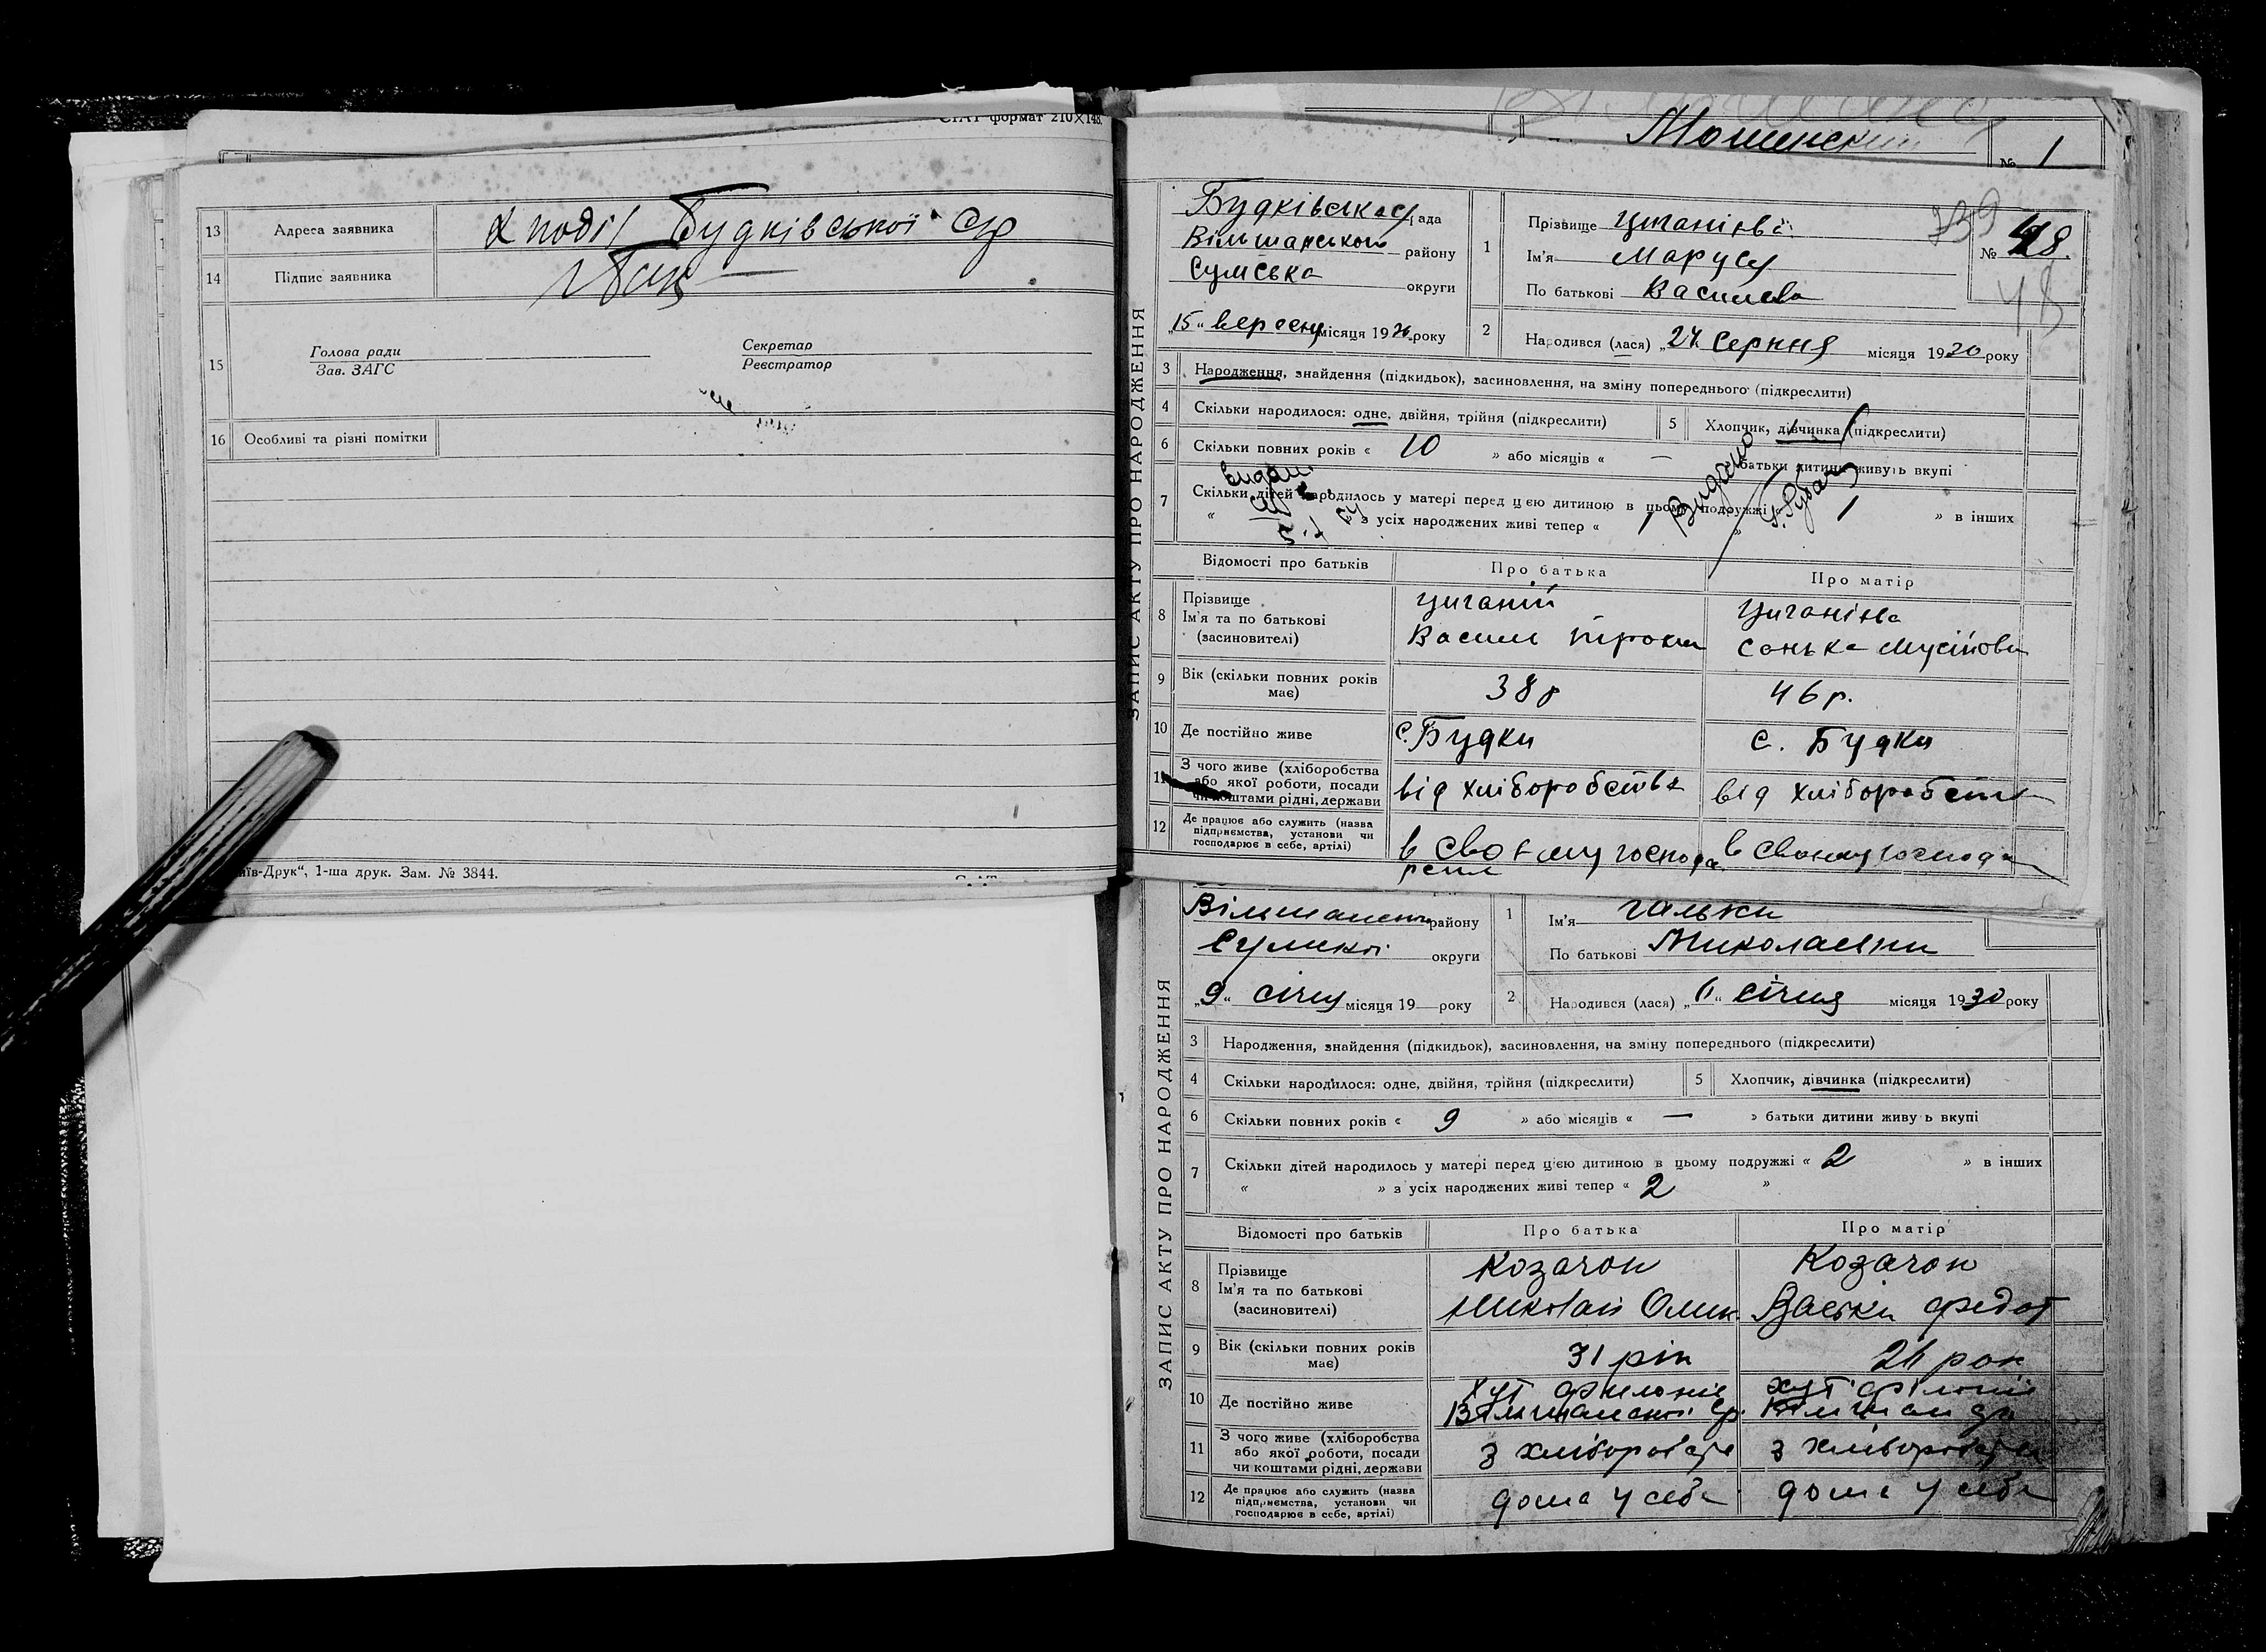 СтАТ формат 210×148.
13 Адреса заявника х поділ Будківської Ср
14 Підпис заявника
15 Голова ради Секретар
Зав. ЗАГС Реєстратор
16 Особливі та різні помітки
"Київ-Друк", 1-ша друк. Зам. № 3844.
Мошенский
№ 1
ЗАПИС АКТУ ПРО НАРОДЖЕННЯ
Будківська рада
Вільшанського району
Сумська округи
„15“ вересня місяця 19 року
739
№ 48.
48
1 Прізвище
Ім'я Маруся
По батькові Василева
2 Народився (лася) „24 Серпня місяця 1930 року
3 Народження, знайдення (підкидьок), засиновлення, на зміну попереднього (підкреслити)
4 Скільки народилося: одне, двійня, трійня (підкреслити) 5 Хлопчик, дівчинка (підкреслити)
6 Скільки повних років « 10 » або місяців « — » батьки дитини живуть вкупі
7 Скільки дітей народилось у матері перед цією дитиною в цьому подружжі « 1 » в інших
« » з усіх народжених живі тепер « 1 »
Видано
Відомості про батьків Про батька Про матір
8 Прізвище
Ім'я та по батькові
(засновителі)
Циганій Циганівна
Василь Трохим Санька Мусійовн
9 Вік (скільки повних років має) 38 р 46 р.
10 Де постійно живе с. Будки с. Будки
11 З чого живе (хліборобства
або якої роботи, посади
чи коштами рідні, держави
від хліборобства від хліборобств
12 Де працює або служить (назва
підприємства, установи чи
господарює в себе, артілі)
в своєму господа в своєму господа
ЗАПИС АКТУ ПРО НАРОДЖЕННЯ
Вільшанськ району
Сумської округи
„9“ січня місяця 19 року
1 Ім'я Галька
По батькові Миколаевни
2 Народився (лася) „ “ січня місяця 1930 року
3 Народження, знайдення (підкидьок), засиновлення, на зміну попереднього (підкреслити)
4 Скільки народилося: одне, двійня, трійня (підкреслити) 5 Хлопчик, дівчинка (підкреслити)
6 Скільки повних років « 9 » або місяців « — » батьки дитини живуть вкупі
7 Скільки дітей народилось у матері перед цією дитиною в цьому подружжі « 2 » в інших
« » з усіх народжених живі тепер « 2 »
Відомості про батьків Про батька Про матір
8 Прізвище
Ім'я та по батькові
(засиновителі)
Козачок Козачок
Миколай Омик. Васька Федот
9 Вік (скільки повних років має) 31 рік 26 рок
10 Де постійно живе
хут хут
Вільшанської Ср.
11 З чого живе (хліборобства
або якої роботи, посади
чи коштами рідні, держави
з хліборобства з хліборобства
12 Де працює або служить (назва
підприємства, установи чи
господарює в себе, артілі)
дома у себе дома у себе